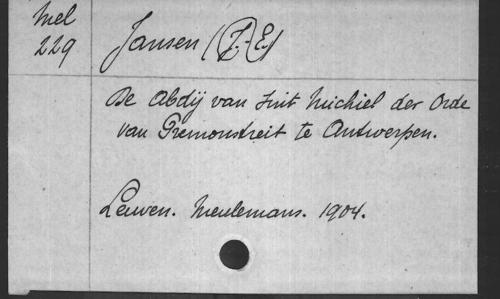 Mel
229
Jansen (J.-E.)
De Abdij van Sint Michiel der Orde
van Premonstreit te Antwerpen.
Leuven. Meulemans. 1904.